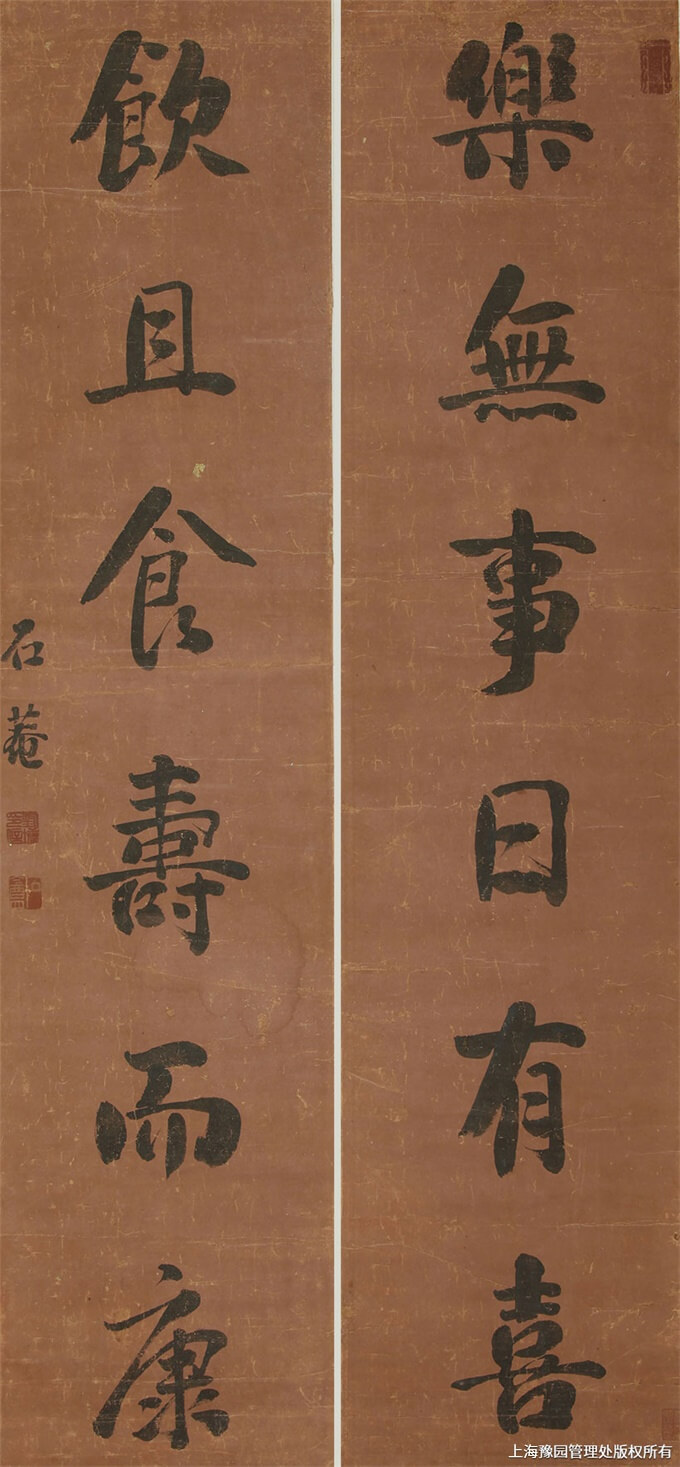 樂無事日有喜
飲且食壽而康
石菴
上海豫园管理处版权所有